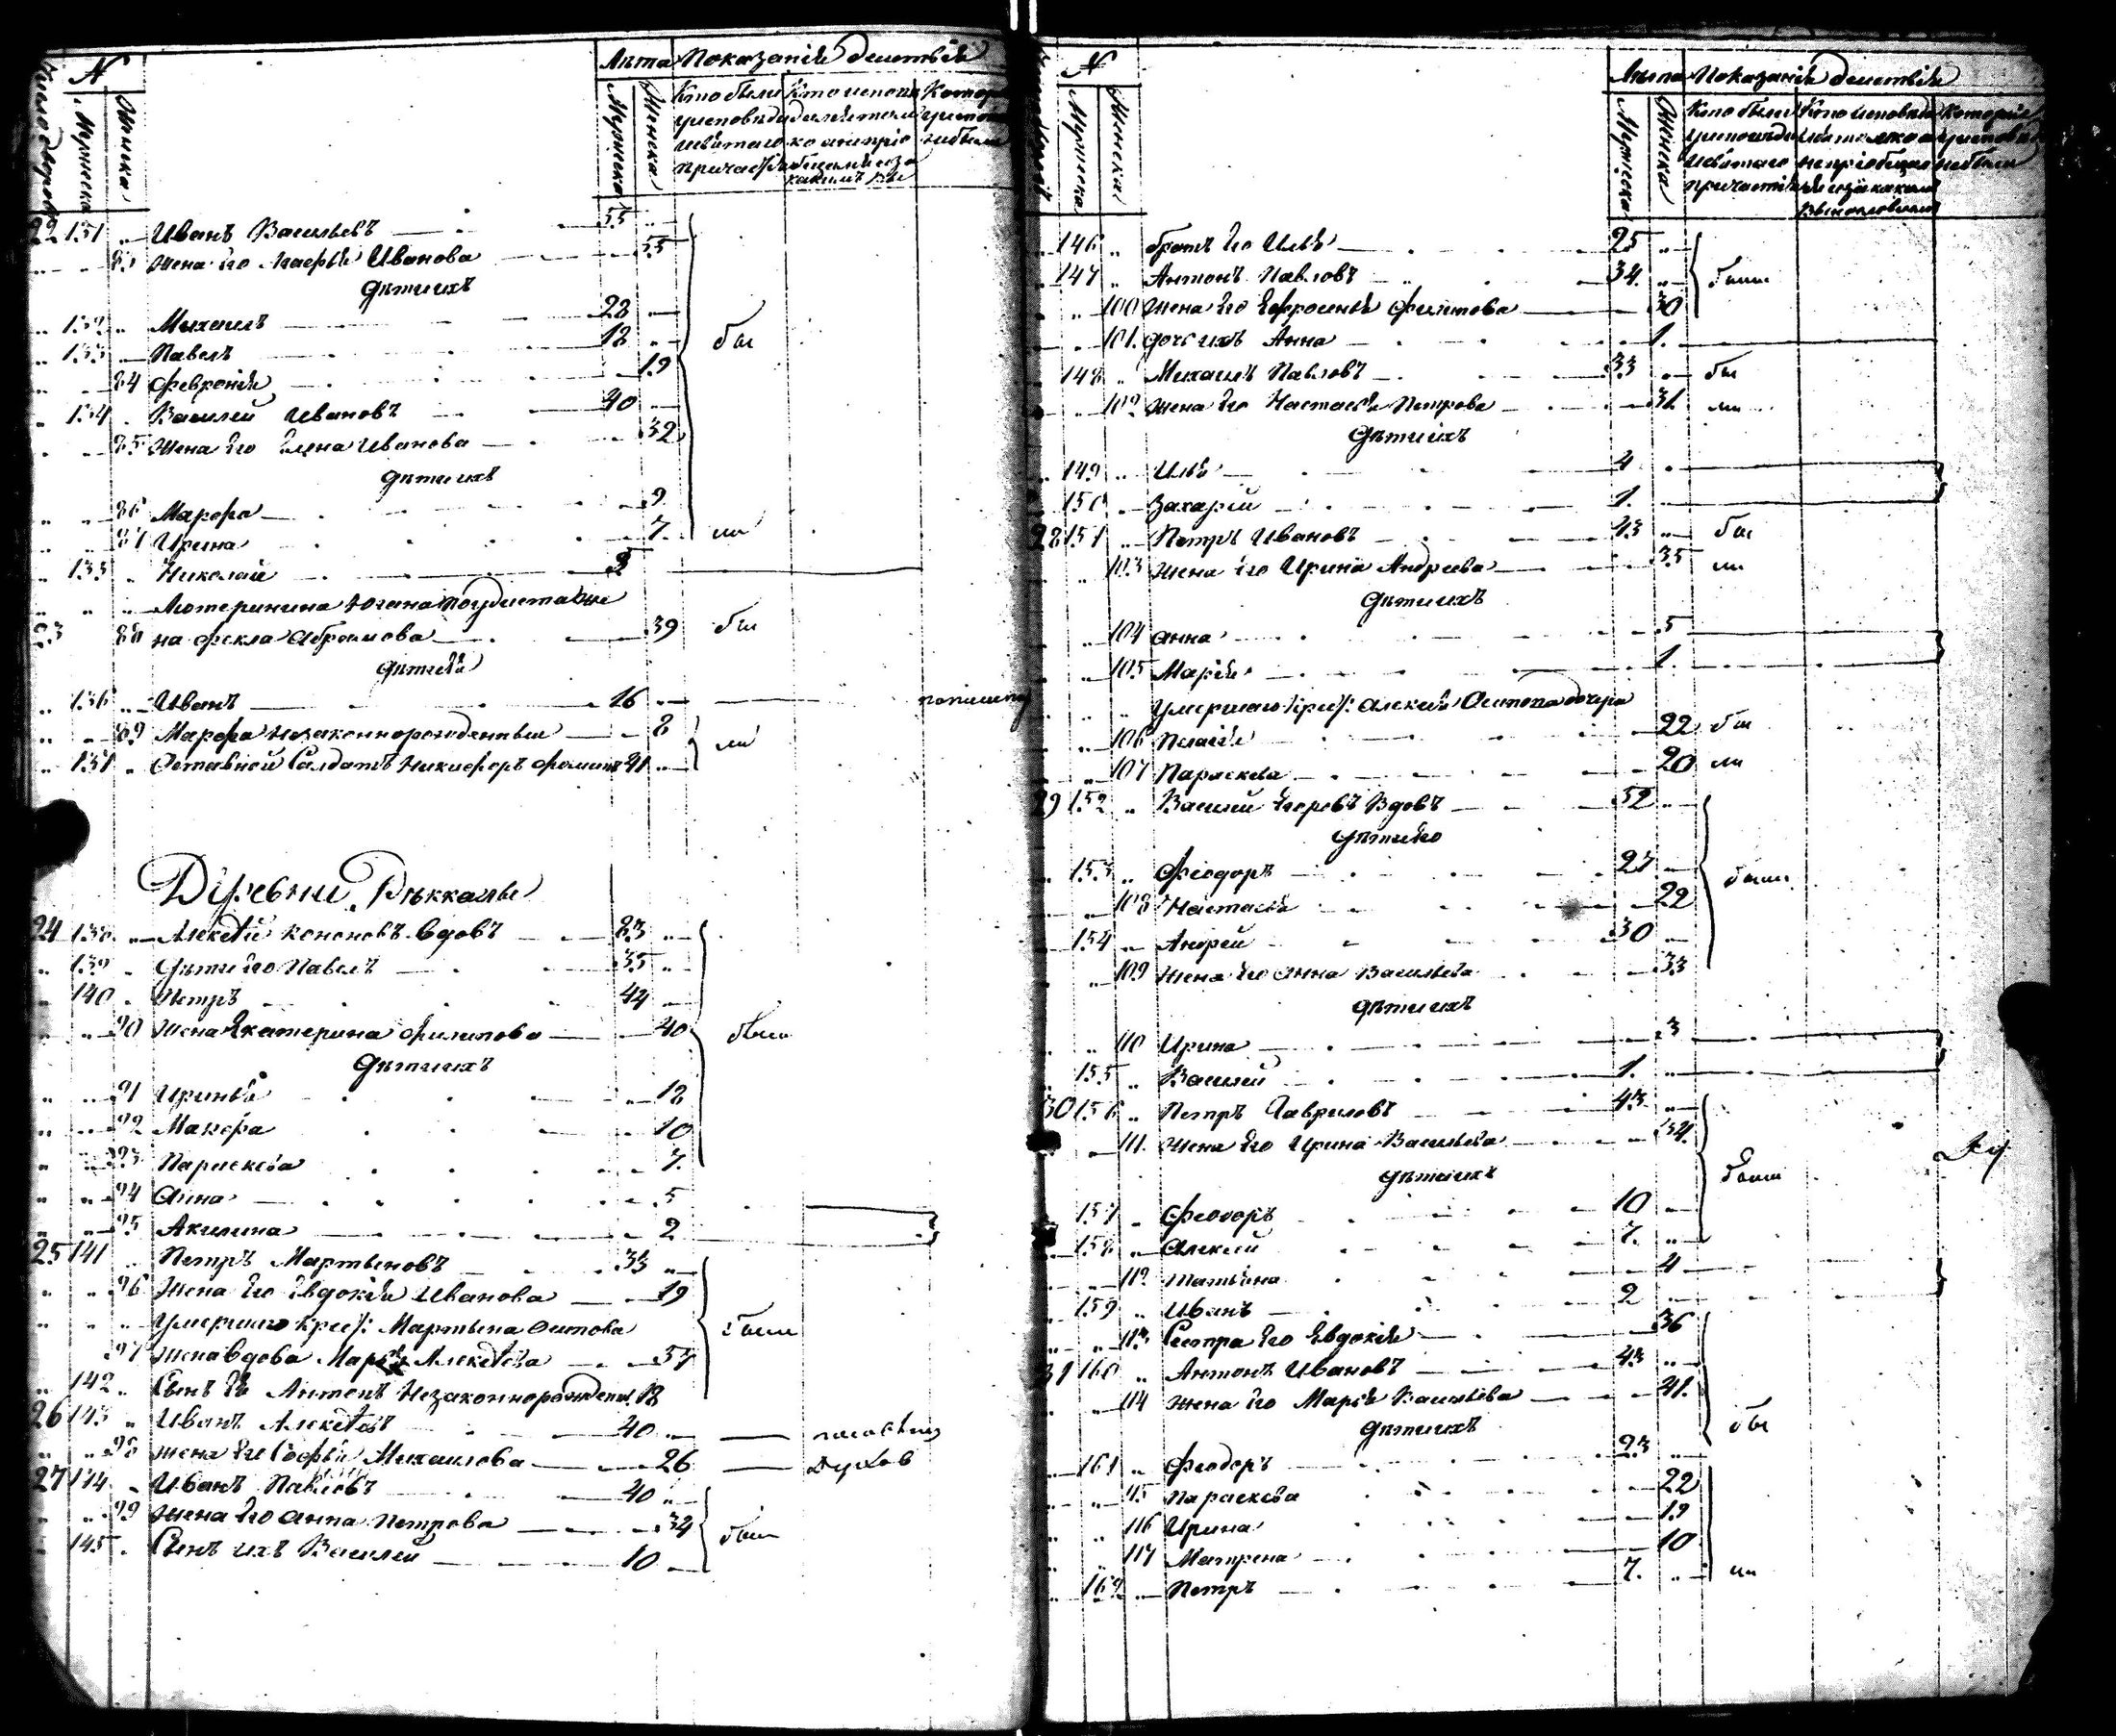 N Лѣта Показанія дѣйствія
Число дворовъ Мужеска Женска Мужеска Женска Кто были Кто исповѣ Котор
у исповѣди
и святаго
причастія
22 131 Иванъ Васильевъ 55
83 жена его Агафья Иванова 55
Дѣти ихъ
132 Михаилъ 22
133 Павелъ 12
84 Февронія 19
134 Василій Ивановъ 40
85 Жена его Елена Иванова 32
дѣти ихъ
86 Марфа 9
87 Ирина 7
135 Николай
Лютеранина
23 88 на Фекла Абрамова 39
дѣти ея
136 Иванъ 16
89 Марфа незаконнорожденныя 8
137 Отставной Солдатъ Никифоръ 41
Деревни Рѣккалы
24 138 Алексѣй Кононовъ вдовъ 83
139 Дѣти его Павелъ 35
140 Петръ 44
90 жена Екатерина Филипова 40
Дѣти ихъ
91 Иринья 12
92 Марфа 10
93 Параскева 7
94 Анна 5
95 Акилина 2
25 141 Петръ Мартыновъ 33
96 Жена его Евдокія Иванова 19
Умершаго крес: Мартына
97 жена вдова Марья Алексѣева 57
142 Сынъ ея Антонъ Незаконнорожден. 18
26 143 Иванъ Алексѣевъ 40
98 жена его Софья Михаилова 26
27 144 Иванъ Павловъ 40
99 жена его Анна Петрова 34 были
145 Сынъ ихъ Василій 10
N Лѣта Показанія дѣйствія
Мужеска Женска Мужеска Женска Кто были Кто исповѣд Которые
у исповѣди
и святаго
причастія
146 братъ его Илья 25
147 Антонъ Павловъ 34 были
100 Жена его Ефросинья Филипова 30
101 дочь ихъ Анна 1
148 Михаилъ Павловъ 33 бы
102 жена его Настасья Петрова 31 ли
Дѣти ихъ
149 Илья 4
150 Захарій 1
28 151 Петръ Ивановъ 43 бы
103 жена его Ирина Андреева 35 ли
Дѣти ихъ
104 Анна 5
105 Марія 1
Умершаго крес: Алексѣя Осипова дочери
106 Пелагея 22 бы
107 Параскева 20 ли
29 152 Василій Егоровъ Вдовъ 52
дѣти его
153 Феодоръ 27
108 Настасья 22 были
154 Андрей 30
109 жена его Анна Васильева 33
дѣти ихъ
110 Ирина 3
155 Василій 1
30 156 Петръ Гавриловъ 43
111 жена его Ирина Васильева 34
дѣти ихъ были
157 Феодоръ 10
158 Алексѣй 7
112 Татьяна 4
159 Иванъ 2
113 Сестра его Евдокія 36
31 160 Антонъ Ивановъ 43
114 жена его Марья Васильева 41
дѣти ихъ бы
161 Феодоръ 23
115 Параскева 22
116 Ирина 19
117 Матрена 10
162 Петръ 7 ли